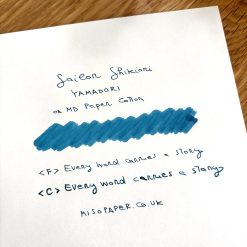 Sailor Shikiori
YAMADORI
on MD Paper Cotton
<F> Every word carries a story
<C> Every word carries a story
MISOPAPER.CO.UK